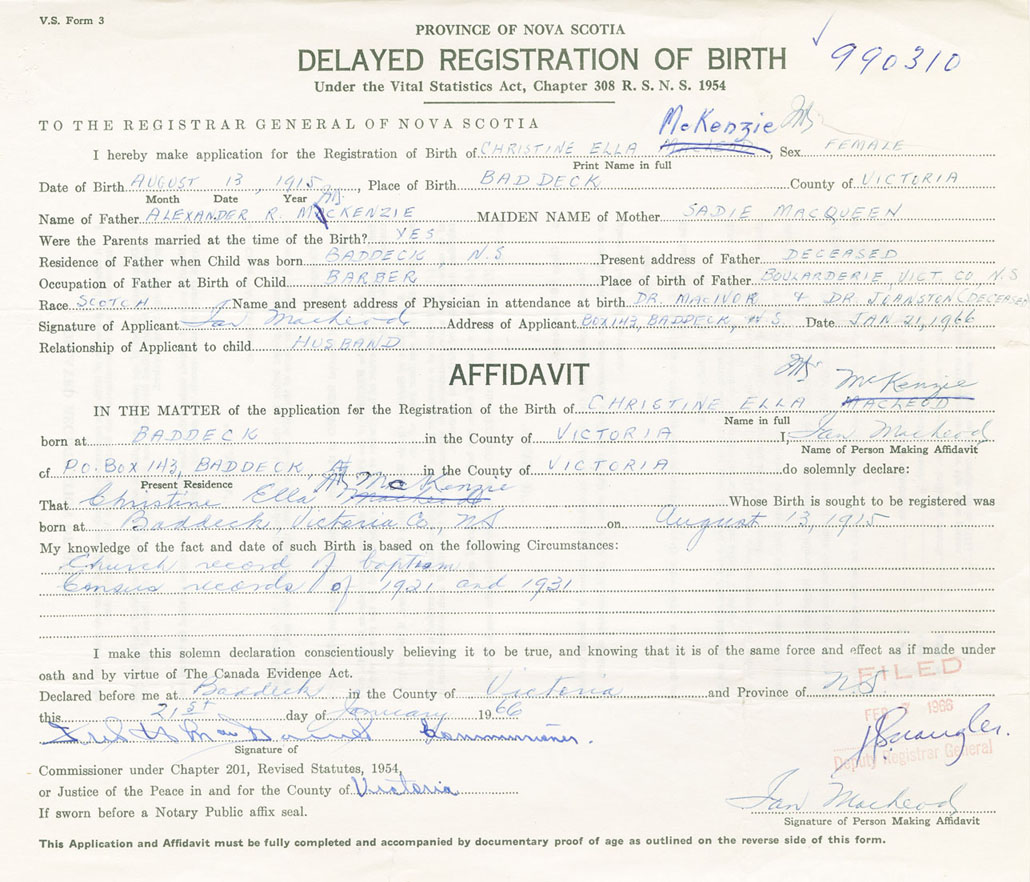 V.S. Form 3
PROVINCE OF NOVA SCOTIA
DELAYED REGISTRATION OF BIRTH
990310
Under the Vital Statistics Act, Chapter 308 R. S. N. S. 1954
TO THE REGISTRAR GENERAL OF NOVA SCOTIA
McKenzie
I hereby make application for the Registration of Birth of CHRISTINE ELLA MacLeod, Sex FEMALE
Print Name in full
Date of Birth AUGUST 13, 1915, Place of Birth BADDECK County of VICTORIA
Month Date Year
Name of Father ALEXANDER R. McKENZIE MAIDEN NAME of Mother SADIE MACQUEEN
Were the Parents married at the time of the Birth? YES
Residence of Father when Child was born BADDECK, N.S Present address of Father DECEASED
Occupation of Father at Birth of Child BARBER Place of birth of Father BOULARDERIE, VICT. CO, N.S
Race SCOTCH Name and present address of Physician in attendance at birth DR. MACIVOR & DR. JOHNSTON (DECEASED
Signature of Applicant Ian MacLeod Address of Applicant BOX 143, BADDECK, N.S. Date JAN 21, 1966
Relationship of Applicant to child HUSBAND
AFFIDAVIT
McKenzie
IN THE MATTER of the application for the Registration of the Birth of CHRISTINE ELLA MACLEOD
Name in full
born at BADDECK in the County of VICTORIA I, Ian MacLeod
Name of Person Making Affidavit
of P.O. BOX 143, BADDECK, in the County of VICTORIA do solemnly declare:
Present Residence
McKenzie
That Christine Ella MacLeod Whose Birth is sought to be registered was
born at Baddeck, Victoria Co., NS on August 13, 1915
My knowledge of the fact and date of such Birth is based on the following Circumstances:
Church record of baptism
Census records of 1921 and 1931
I make this solemn declaration conscientiously believing it to be true, and knowing that it is of the same force and effect as if made under
oath and by virtue of The Canada Evidence Act.
FILED
Declared before me at Baddeck in the County of Victoria and Province of NS
this 21st day of January 1966
FEB 7 1966
Commissioner.
Signature of
Deputy Registrar General
Commissioner under Chapter 201, Revised Statutes, 1954,
or Justice of the Peace in and for the County of Victoria
If sworn before a Notary Public affix seal.
Ian MacLeod
Signature of Person Making Affidavit
This Application and Affidavit must be fully completed and accompanied by documentary proof of age as outlined on the reverse side of this form.